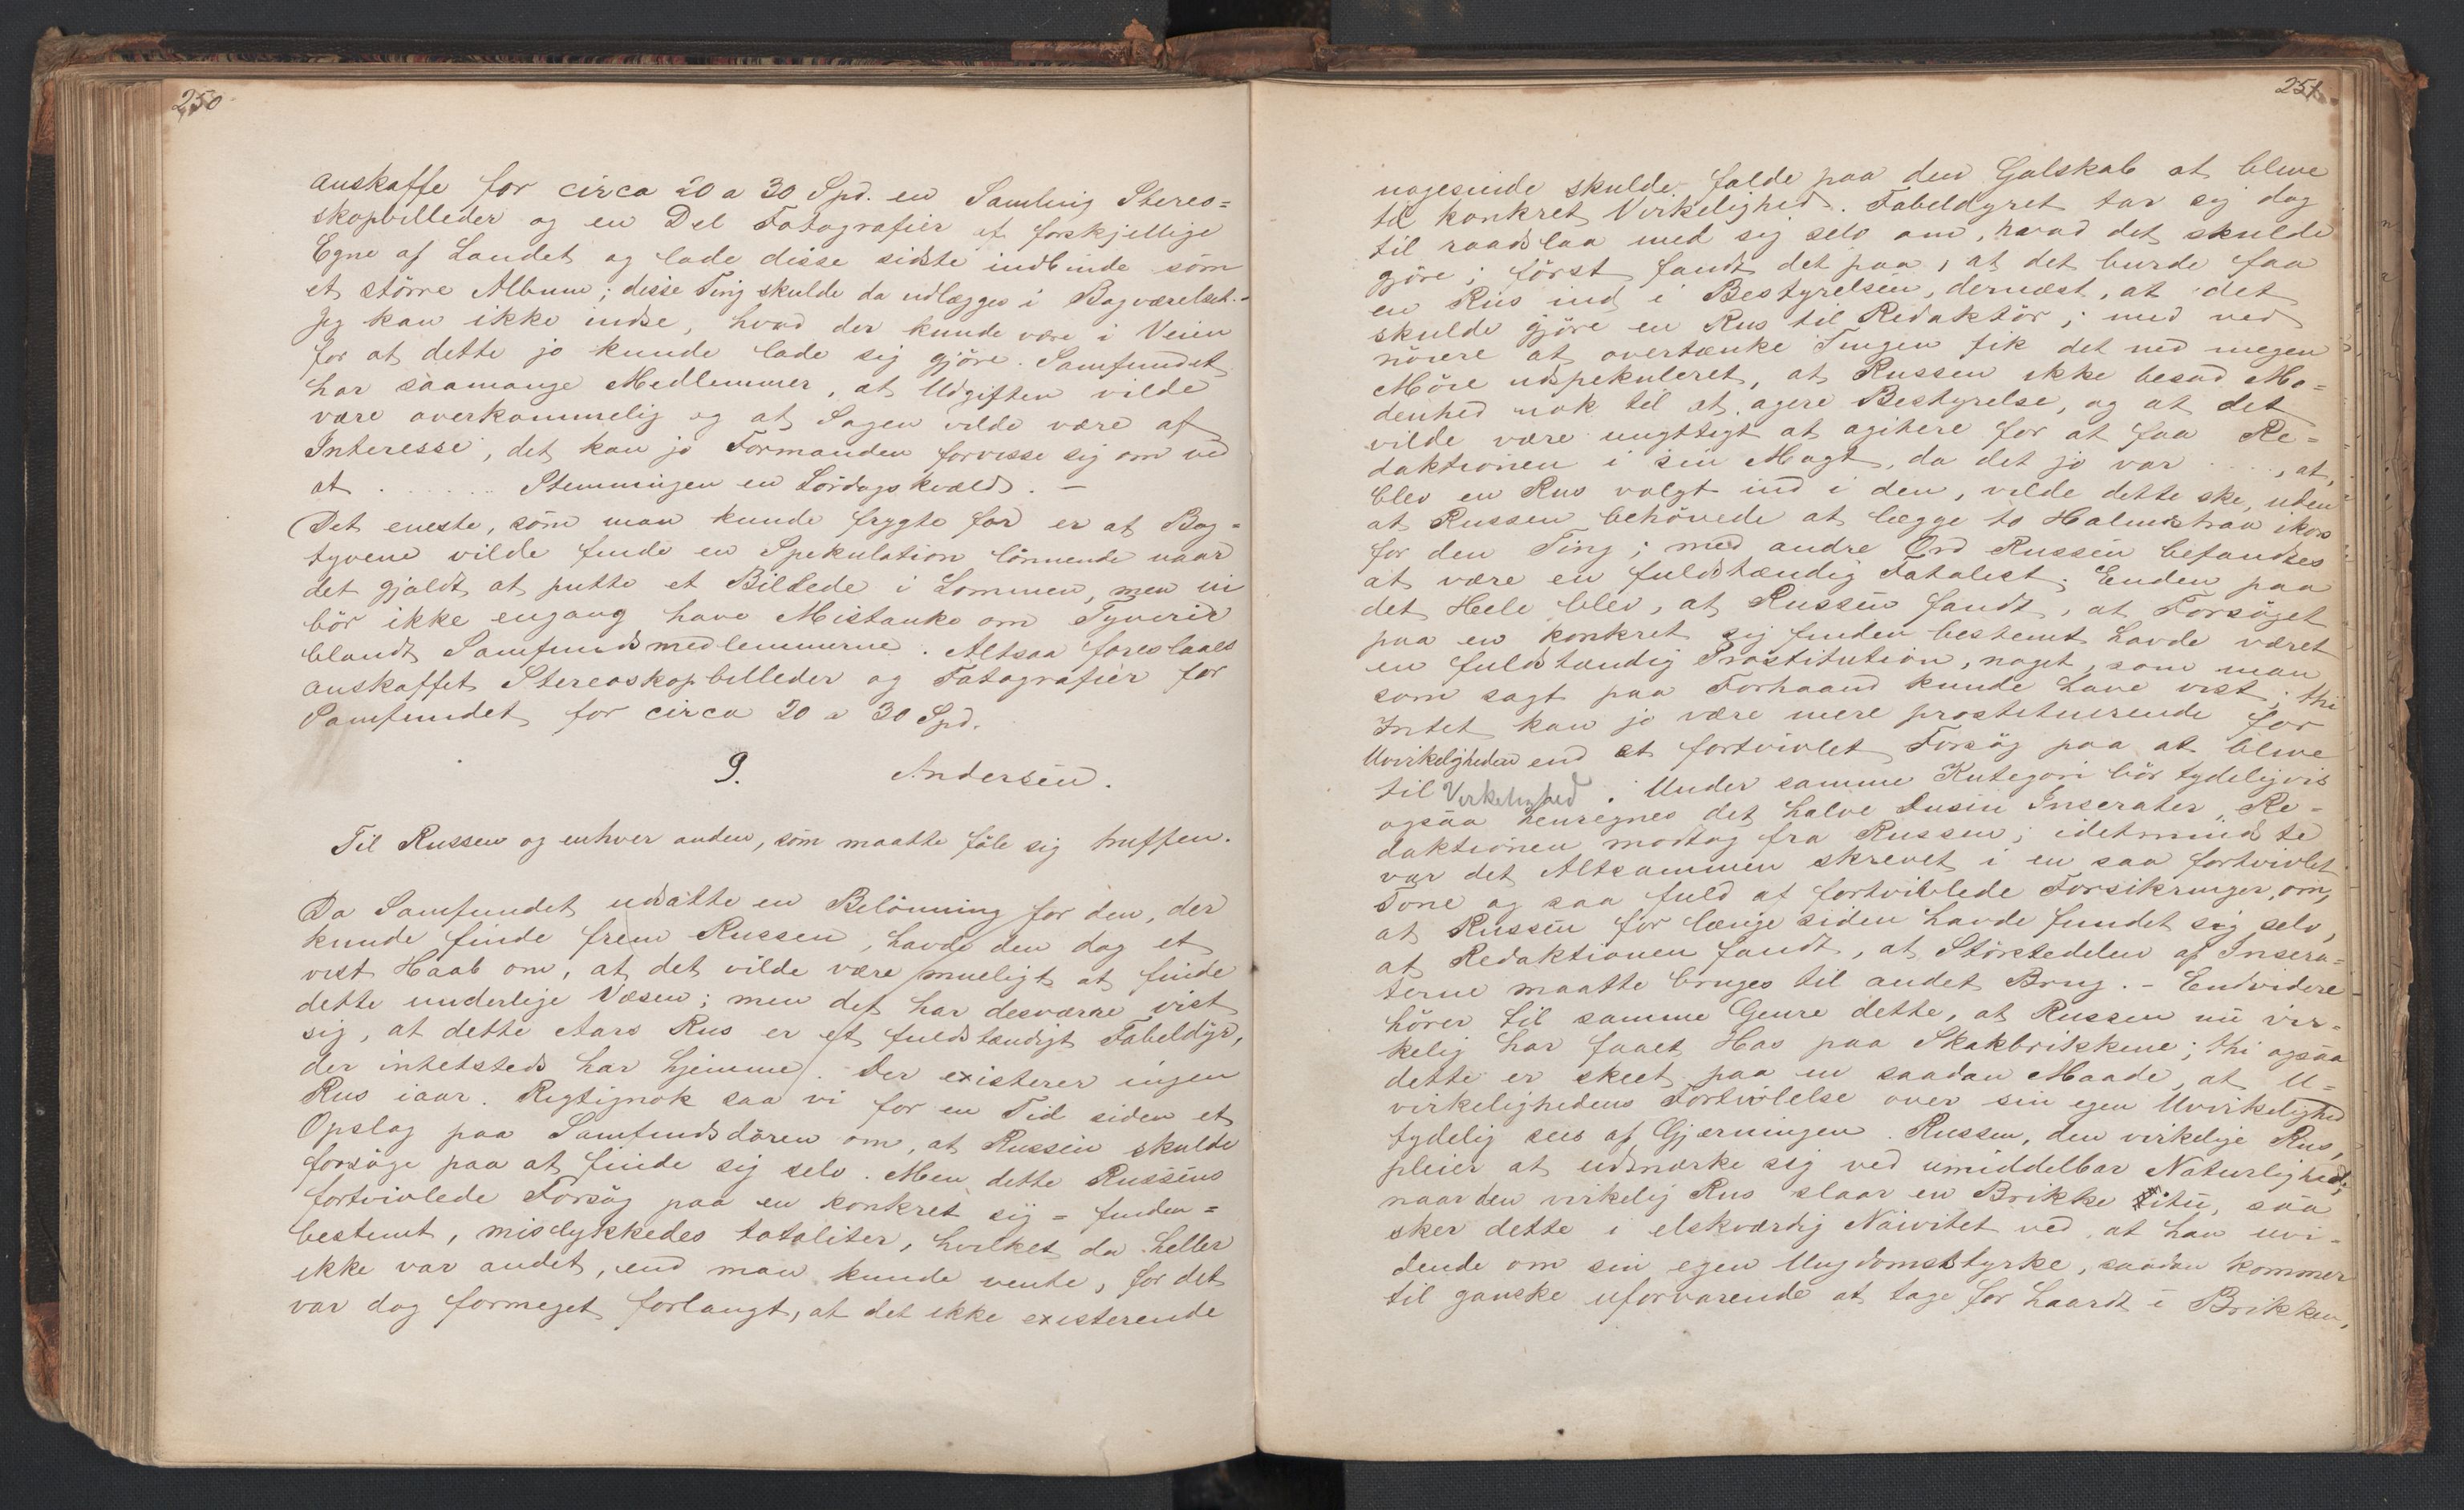 250
anskaffe for circa 20 a 30 Spd. en Samling Stereo-
skopbilleder og en Del Fotografier af forskjellige
Egne af Landet og lade disse sidste indbinde som
et större Album; disse Ting skulde da udlægges i Bagværelset. -
Jeg kan ikke indse, hvad der kunde være i Veien
for at dette jo kunde lade sig gjöre. Samfundet
har saamange Medlemmer, at Udgiften vilde
være overkommelig og at Sagen vilde være af
Interesse, det kan jo Formanden forvisse sig om ved
at ...... Stemningen en Lördagskvæld. -
Det eneste, som man kunde frygte for er at Bog-
tyvene vilde finde en Spekulation lönnende naar
det gjaldt at putte et Billede i Lommen, men vi
bör ikke engang have Mistanke om Tyverie
blandt Samfundsmedlemmerne. Altsaa foreslaaes
anskaffet Stereoskopbilleder og Fotografier for
Samfundet for circa 20 a 30 Spd.
9. Andersen.
Til Russen og enhver anden, som maatte föle sig truffen.
Da Samfundet udsatte en Belönning for den, der
kunde finde frem Russen, havde den dog et
vist Haab om, at det vilde være mueligt at finde
dette underlige Væsen; men det har desværre vist
sig, at dette Aars Rus er et fuldstændigt Fabeldyr,
der intetsteds har hjemme. Der existerer ingen
Rus iaar. Rigtignok saa vi for en Tid siden et
Opslag paa Samfundsdören om, at Russen skulde
forsöge paa at finde sig selv. Men dette Russens
fortvivlede Forsög paa en konkret sig = finden =
bestemt, mislykkedes totaliter, hvilket da heller
ikke var andet, end man kunde vente, for det
var dog formeget forlangt, at det ikke existerende
251
nogesinde skulde falde paa den Galskab at blive
til konkret Virkelighed. Fabeldyret tar sig dog
til raadslaa med sig selv om, hvad det skulde
gjöre; först fandt det paa, at det burde faa
en Rus ind i Bestyrelsen, dernæst, at det
skulde gjöre en Rus til Redaktör; med ved
nöiere at overtænke Tingen fik det med megen
Möie udspekuleret, at Russen ikke besad Mo-
denhed nok til at agere Bestyrelse, og at det
vilde være unyttigt at agitere for at faa Re-
daktionen i sin Magt, da det jo var ...., at,
blev en Rus valgt ind i den, vilde dette ske, uden
at Russen behövede at lægge to Halmstraa ikors
for den Ting; med andre Ord Russen befandtes
at være en fuldstændig Fatalist. Enden paa
det Hele blev, at Russen fandt, at Forsöget
paa en konkret sig finden bestemt havde været
en fuldstændig Prostitution, noget, som man
som sagt paa Forhaand kunde have vist; thi
Intet kan jo være mere prostituerende for
Uvirkeligheden end et fortvivlet Forsög paa at blive
til Virkelighed. Under samme Kategori bör tydeligvis
ogsaa henregnes det halve Dusin Inserater, Re-
daktionen modtog fra Russen; idetmindste
var det Altsammen skrevet i en saa fortvivlet
Tone og saa fuld af fortvivlede Forsikringer, om,
at Russen for længe siden havde fundet sig selv,
at Redaktionen fandt, at Störstedelen af Insera-
terne maatte bruges til andet Brug. - Endvidere
hörer til samme Genre dette, at Russen nu vir-
kelig har faaet Has paa Skakbrikkene; thi ogsaa
dette er skeet paa en saadan Maade, at U-
virkelighedens Fortvivlelse over sin egen Uvirkelighed
tydelig sees af Gjærningen. Russen, den virkelige Rus,
pleier at udmærke sig ved umiddelbar Naturlighed;
naar den virkelig Rus slaar en Brikke itu, saa
sker dette i elskværdig Naivitet ved, at han uvi-
dende om sin egen Ungdomsstyrke, saadan kommer
til ganske uforvarende at tage for haardt i Brikken,